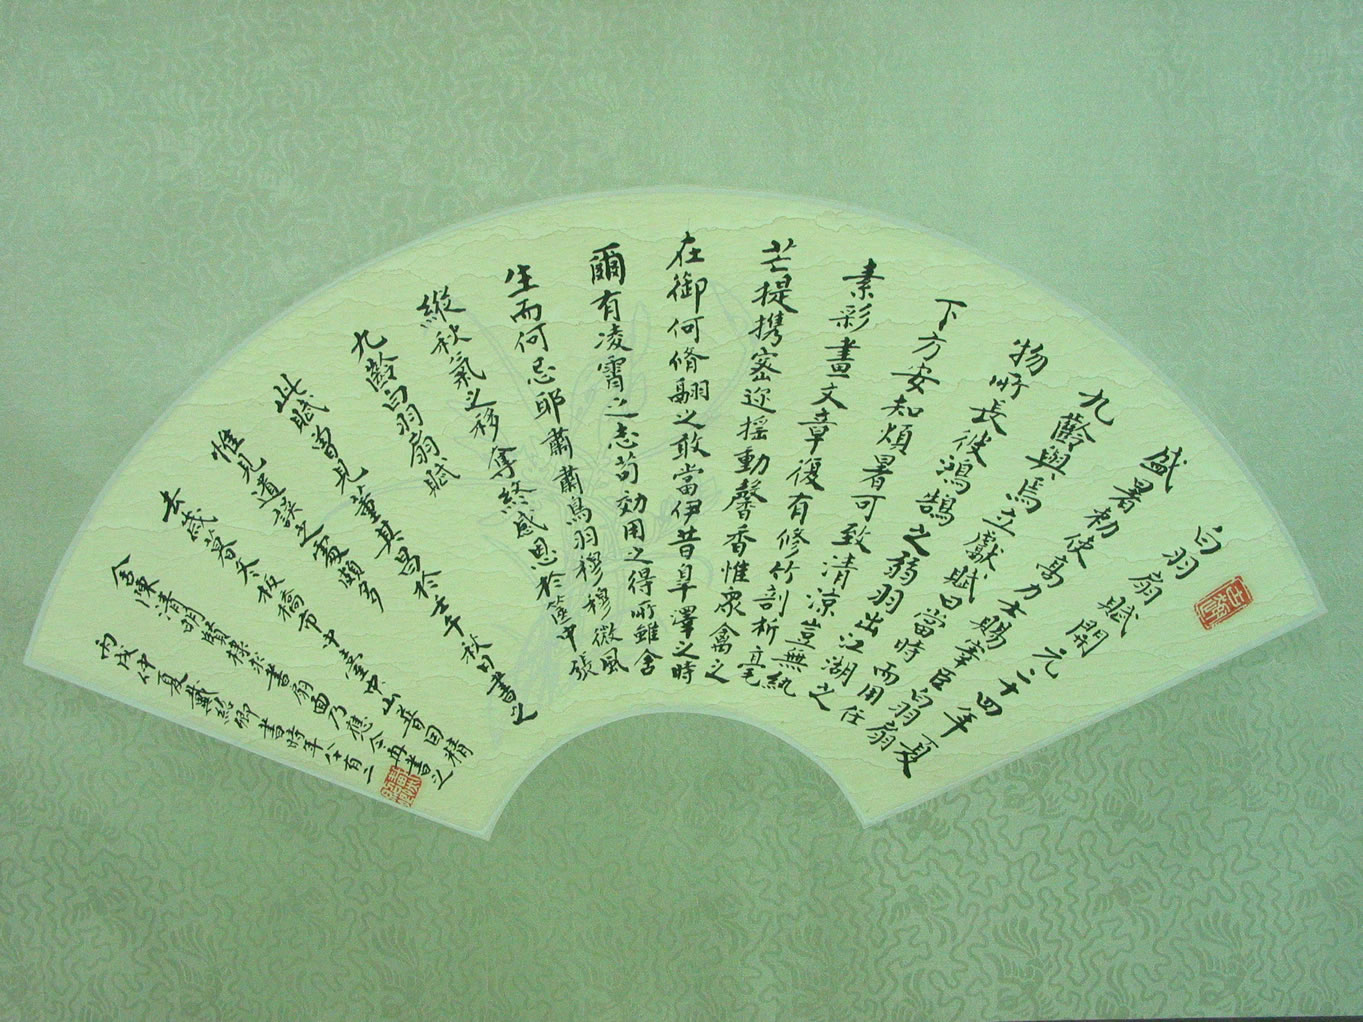 白羽扇賦開元二十四年夏
盛暑初使高力士賜宰臣白羽扇
九齡與焉立獻賦曰當時而用任
物所長彼鴻鵠之弱羽出江湖之
下方安知煩暑可致清涼豈無紈
素彩畫文章復有修竹剖析毫
芒提攜密邇搖動馨香惟眾禽之
在御何脩翮之敢當伊昔皐澤之時
爾有凌霄之志苟効用之得所雖舍
生而何忌耶肅肅鳥羽穆穆微風
縱秋氣之移奪終感恩於篋中張
九齡白羽扇賦
此賦曾見董其昌於壬午秋日書之
惟見遺誤之處頗多
去歲暮冬板橋市中
陳清明賢棣 書扇面乃應命再書之
丙戌仲夏戴 卿書時年八十有二